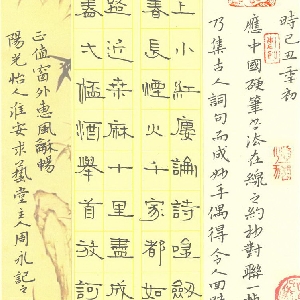 時己丑初
應中國硬筆書法在線之約抄對聯一
乃集古人詞句而成妙手偶得令人回
上小紅廔論詩唫劔
春長煙火千家都如
路近桑麻十里盡成
大酒舉首放訶
正值窗外惠風龢暢
陽光怡人淮安求藝堂主周永記之